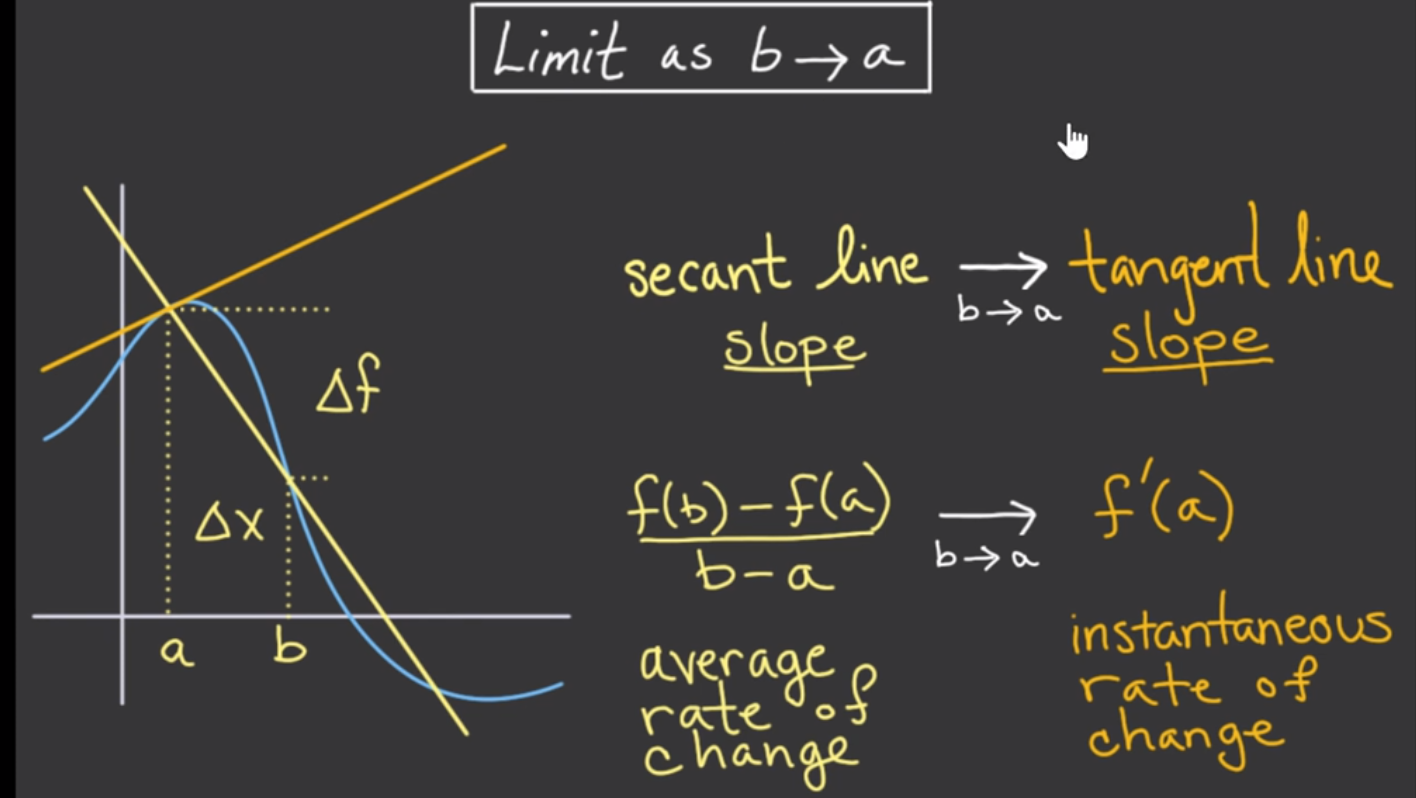 Limit as b→a
Δf
Δx
a
b
secant line
slope
⟶
b→a
tangent line
slope
f(b)−f(a)
b−a
⟶
b→a
f′(a)
average
rate of
change
instantaneous
rate of
change